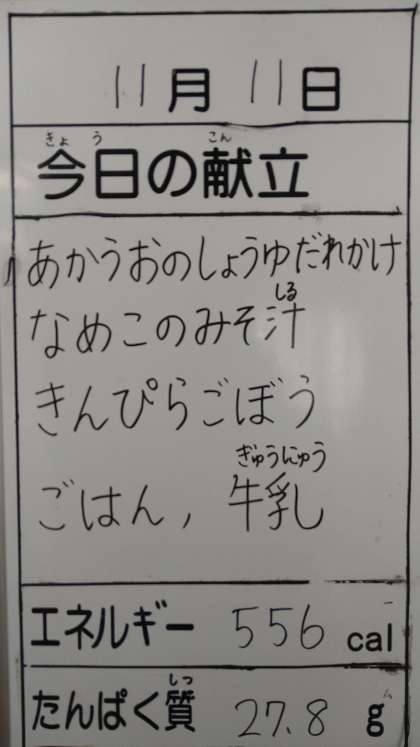 11月11日
きょう こん
今日の献立
あかうおのしょうゆだれかけ
しる
なめこのみそ汁
きんぴらごぼう
ぎゅうにゅう
ごはん, 牛乳
エネルギー 556 cal
しつ
たんぱく質 27.8 g